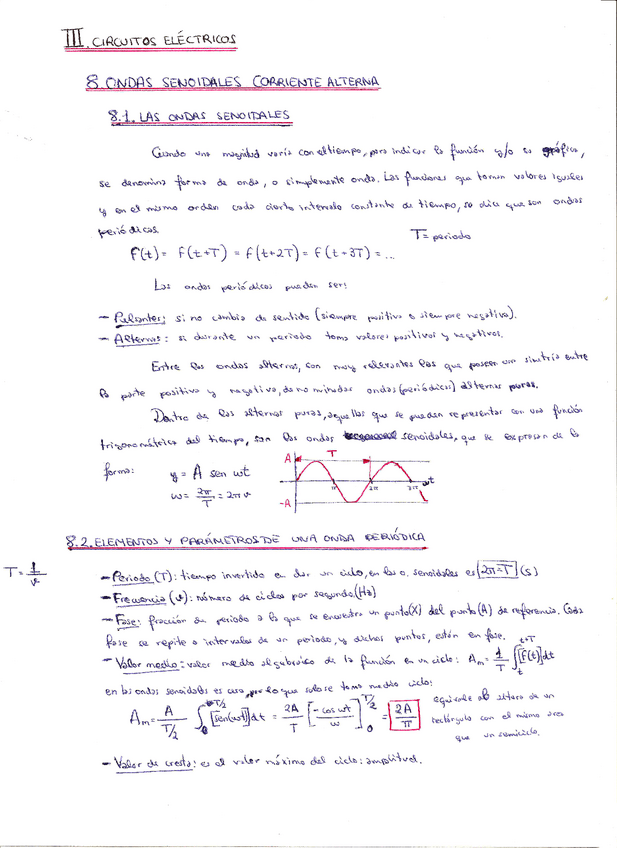 III. CIRCUITOS ELÉCTRICOS
8. ONDAS SENOIDALES CORRIENTE ALTERNA
8.1. LAS ONDAS SENOIDALES
Cuando una magnitud varía con el tiempo, para indicar la función y/o su gráfica,
se denomina forma de onda, o simplemente onda. Las funciones que toman valores iguales
y en el mismo orden cada cierto intervalo constante de tiempo, se dice que son ondas
periódicas.
T = periodo
F(t) = F(t+T) = F(t+2T) = F(t+3T) = ...
Las ondas periódicas pueden ser:
- Pulsantes: si no cambia de sentido (siempre positiva o siempre negativa).
- Alternas: si durante un periodo toma valores positivos y negativos.
Entre las ondas alternas, son muy relevantes las que poseen una simetría entre
la parte positiva y negativa, denominadas ondas (periódicas) alternas puras.
Dentro de las alternas puras, aquellas que se pueden representar con una función
trigonométrica del tiempo, son las ondas senoidales, que se expresan de la
forma:
y = A sen wt
w = 2π/T = 2πν
A T
π 2π 3π wt
-A
8.2. ELEMENTOS Y PARÁMETROS DE UNA ONDA PERIÓDICA
T = 1/ν
- Periodo (T): tiempo invertido en dar un ciclo, en las o. senoidales es 2π=T (s)
- Frecuencia (ν): número de ciclos por segundo (Hz)
- Fase: fracción de periodo a la que se encuentra un punto (X) del punto (A) de referencia. Cada
fase se repite a intervalos de un periodo, y dichos puntos, están en fase.
- Valor medio: valor medio algebraico de la función en un ciclo: Am = 1/T ∫ₜᵗ⁺ᵀ [F(t)] dt
en las ondas senoidales es cero, por lo que solo se toma medio ciclo:
Am = A/(T/2) ∫₀^(T/2) [sen(wt)] dt = 2A/T [-cos wt / w]₀^(T/2) = 2A/π
equivale al altura de un
rectángulo con el mismo area
que un semiciclo.
- Valor de cresta: es el valor máximo del ciclo: amplitud.